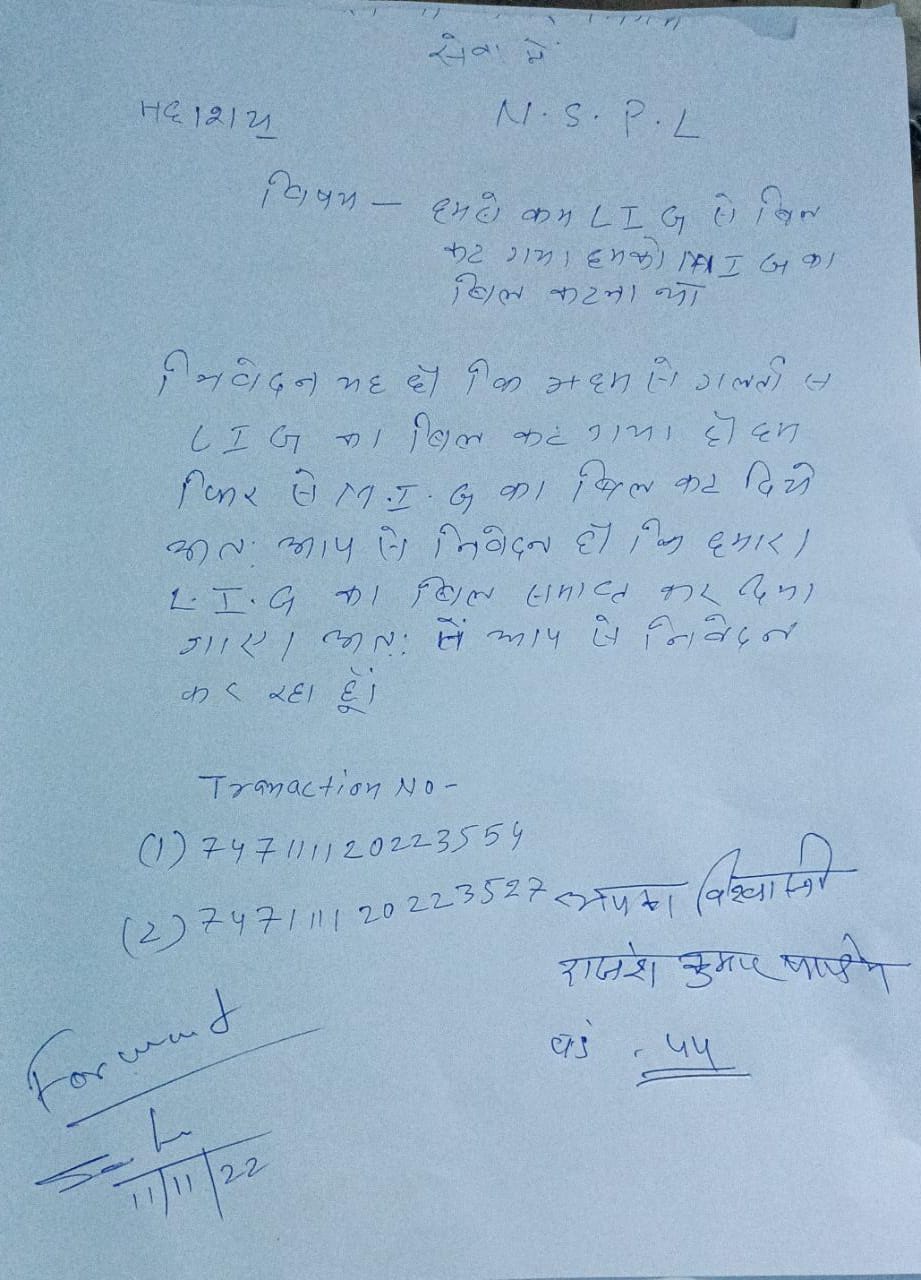 सेवा में
महाशय
N.S.P.L
विषय - हमसे कम LIG से बिल
कट गया हमको MIG का
बिल कटना था
निवेदन यह है कि हम से गलती से
LIG का बिल कट गया है हम
फिर से M.I.G का बिल कट दिये
अतः आप से निवेदन है कि हमारा
L.I.G का बिल समाप्त कर दिया
जाए। अतः मैं आप से निवेदन
कर रहा हूँ।
Tranaction No-
(1) 747111120223554
(2) 747111120223527
आपका विश्वासी
राजेश कुमार पाण्डेय
वार्ड . 44
Forward
11/11/22